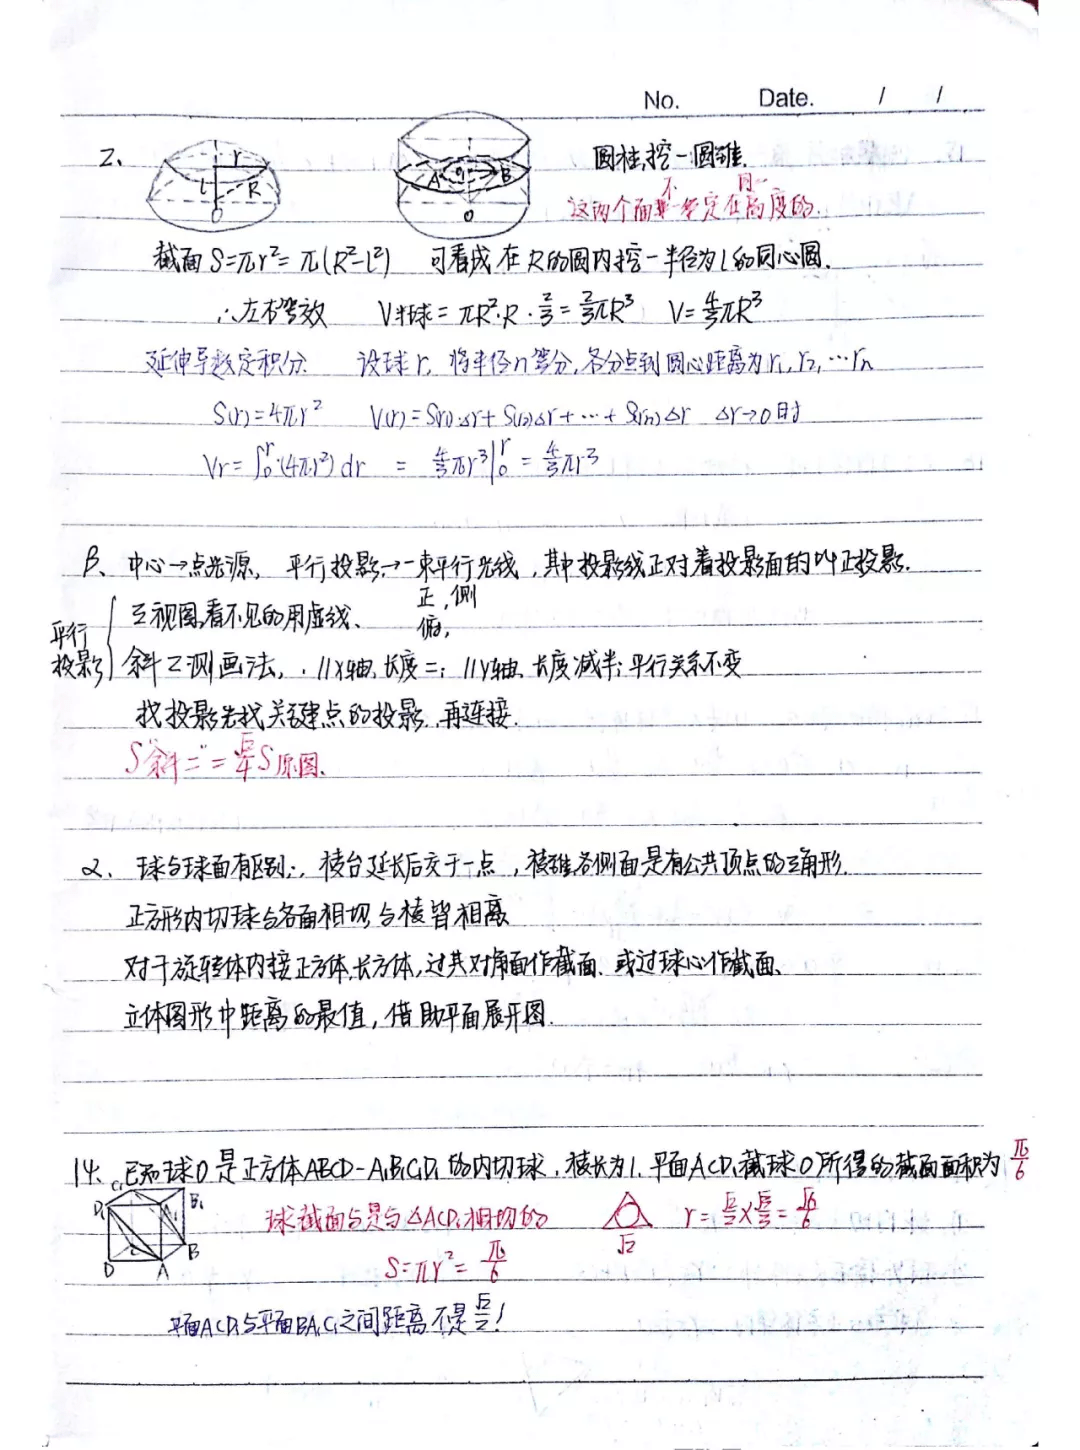 No.    Date.    /    /
2、 圆柱,挖一圆锥.
r L R O A O₁ B O
这两个面不一定在同一高度的.
截面 S=πr²=π(R²-L²) 可看成在R的圆内挖一半径为L的同心圆.
∴左右等效 V半球=πR²·R·2/3=2/3πR³ V=4/3πR³
延伸导数定积分. 设球r, 将半径n等分,各分点到圆心距离为r₁,r₂,…rn
S(r)=4πr² V(r)=S(r₁)·△r+S(r₂)△r+…+S(rn)△r △r→0时
Vr=∫₀ʳ(4πr²)dr = 4/3πr³|₀ʳ = 4/3πr³
β、中心→点光源, 平行投影→一束平行光线,其中投影线正对着投影面的叫正投影.
平行投影 { 三视图,看不见的用虚线、 正,侧 俯,
斜二测画法, ∥X轴,长度=; ∥Y轴,长度减半;平行关系不变
找投影先找关键点的投影,再连接.
S"斜二"=√2/4 S原图.
α、球与球面有区别;, 棱台延长后交于一点,棱锥各侧面是有公共顶点的三角形.
正方形内切球与各面相切与棱皆相离
对于旋转体内接正方体,长方体,过其对角面作截面、或过球心作截面、
立体图形中距离的最值,借助平面展开图.
14、已知球O是正方体ABCD-A₁B₁C₁D₁的内切球,棱长为1,平面ACD₁截球O所得的截面面积为π/6
C₁ D₁ B₁ A₁ C B D A
球截面与是与△ACD₁相切的 √2 r=√2/2×√3/3=√6/6
S=πr²=π/6
平面ACD₁与平面BA₁C₁之间距离不是√2/2!